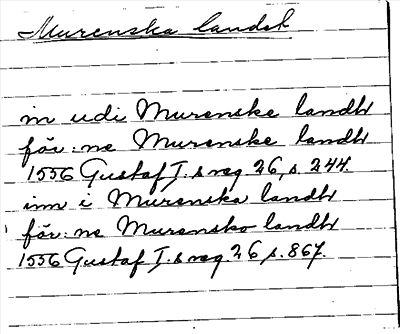 Murenska landsk
in udi Murenske landh
för: ne Murenske landh
1556 Gustaf I. s reg 26, s. 244.
inn i Murenska landh
för: ne Murensko landh
1556 Gustaf I. s reg. 26 s. 867.